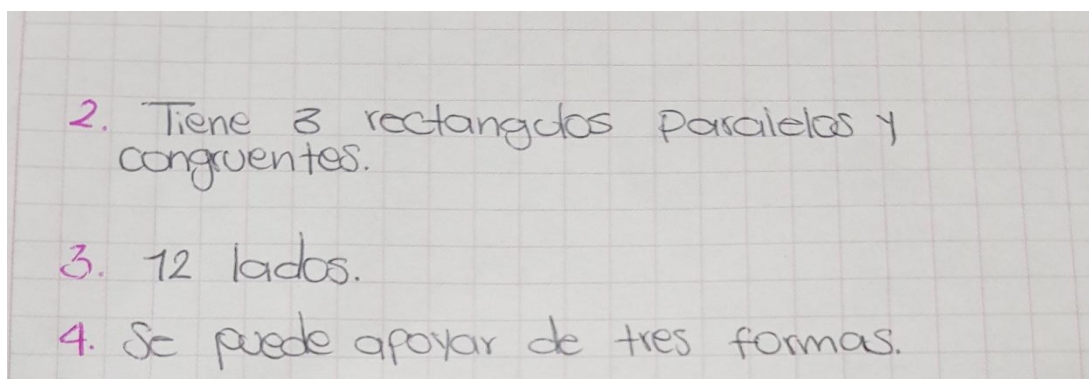 2. Tiene 3 rectangulos paralelos y
congruentes.
3. 12 lados.
4. Se puede apoyar de tres formas.